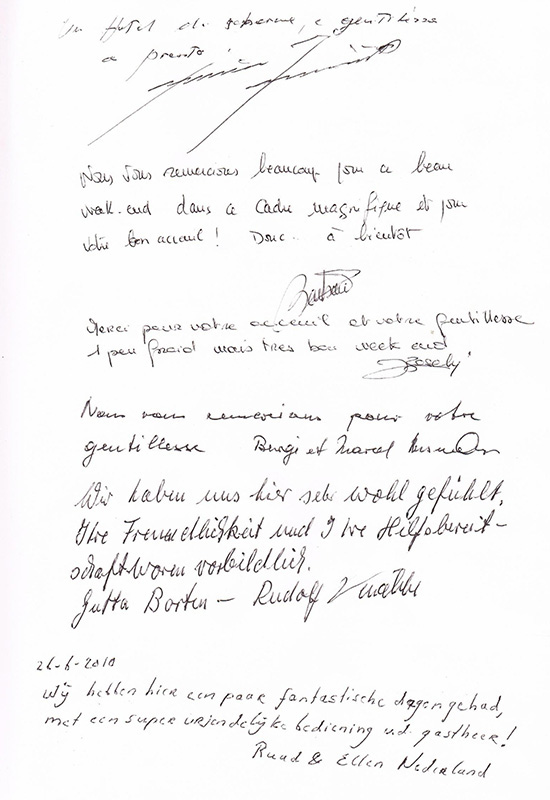 Un Hotel di charme, e gentilezza
a presto!
Nous Vous remercions beaucoup pour ce beau
week-end dans ce cadre magnifique et pour
votre bon accueil! Donc.. à bientôt
Merci pour votre acceuil et votre gentillesse
1 peu froid mais tres bon week end
Nous vous remercions pour votre
gentillesse Burgi et Marcel
Wir haben uns hier sehr wohl gefühlt,
Ihre Freundlichkeit und Ihre Hilfsbereit-
schaft waren vorbildlich.
Jutta Borten – Rudolf
26-6-2010
Wij hebben hier een paar fantastische dagen gehad,
met een super vriendelijke bediening v.d. gastheer!
Ruud & Ellen Nederland